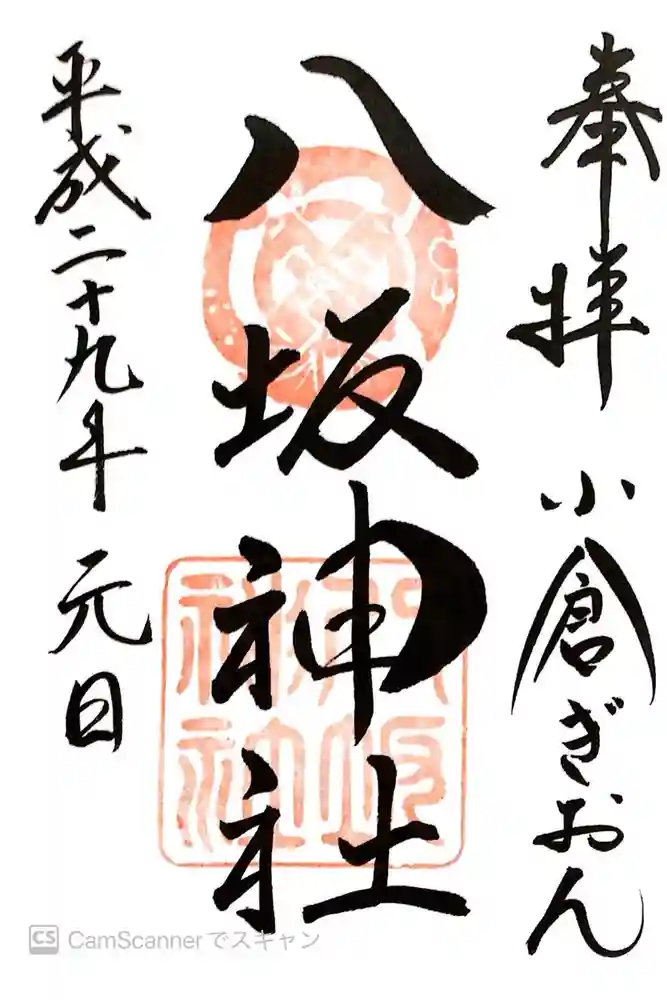 奉拝
小倉ぎおん
八坂神社
平成二十九年 元日
CS CamScannerでスキャン